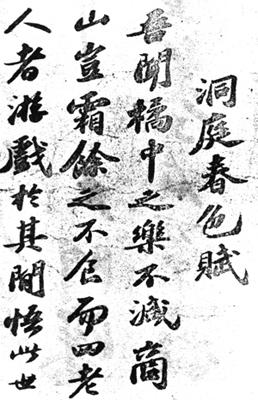 洞庭春色賦
吾聞橘中之樂不減商
山豈霜餘之不食而四老
人者游戲於其間悟此世